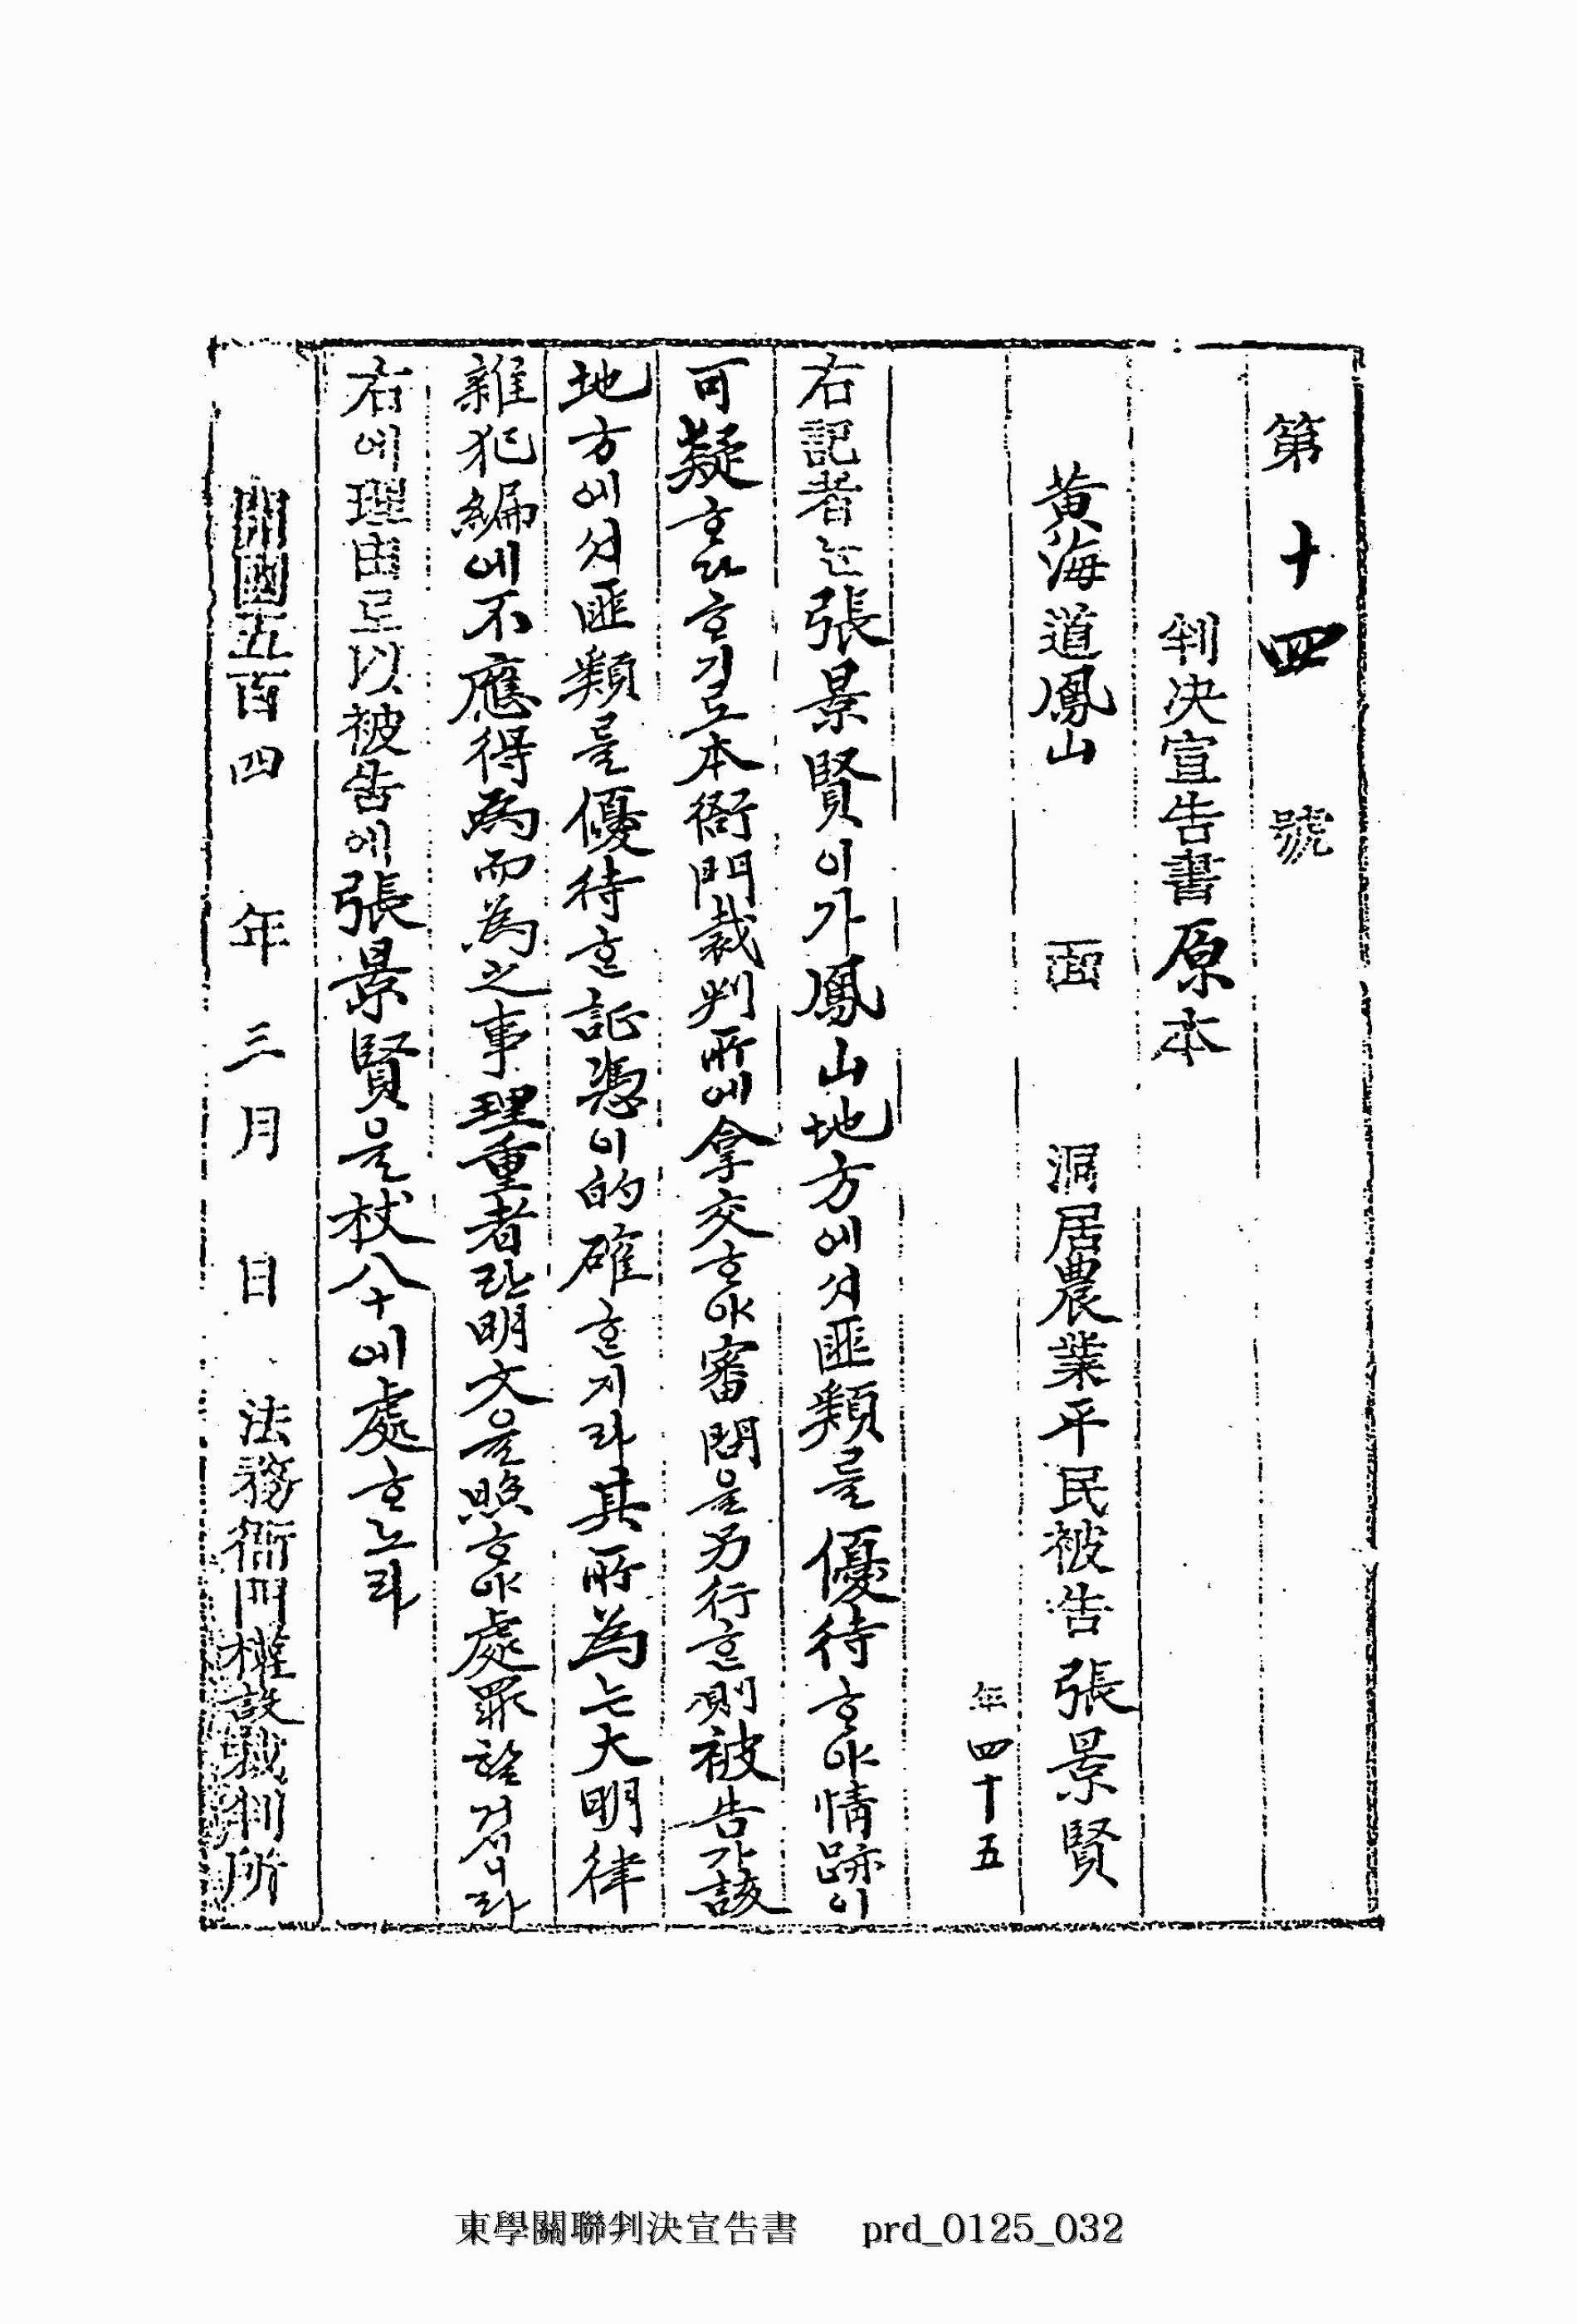 第十四 號
判决宣告書原本
黃海道鳳山 面 洞居農業平民被告 張景賢
年四十五
右記者는 張景賢이가 鳳山地方에셔 匪類를 優待ᄒᆞ야 情跡이
可疑ᄒᆞ다 ᄒᆞ기로 本衙門裁判所에 拿交ᄒᆞ야 審問을 另行ᄒᆞᆫ則 被告가 該
地方에셔 匪類를 優待ᄒᆞᆫ 証憑이 的確ᄒᆞᆫ지라 其所為는 大明律
雜犯編에 不應得為而為之事理重者란 明文을 照ᄒᆞ야 處罪ᄒᆞᆯ 거시니라
右에 理由로以 被告에 張景賢을 杖八十에 處ᄒᆞ노라
開國五百四 年 三月 日 法務衙門權設裁判所
東學關聯判決宣告書 prd_0125_032